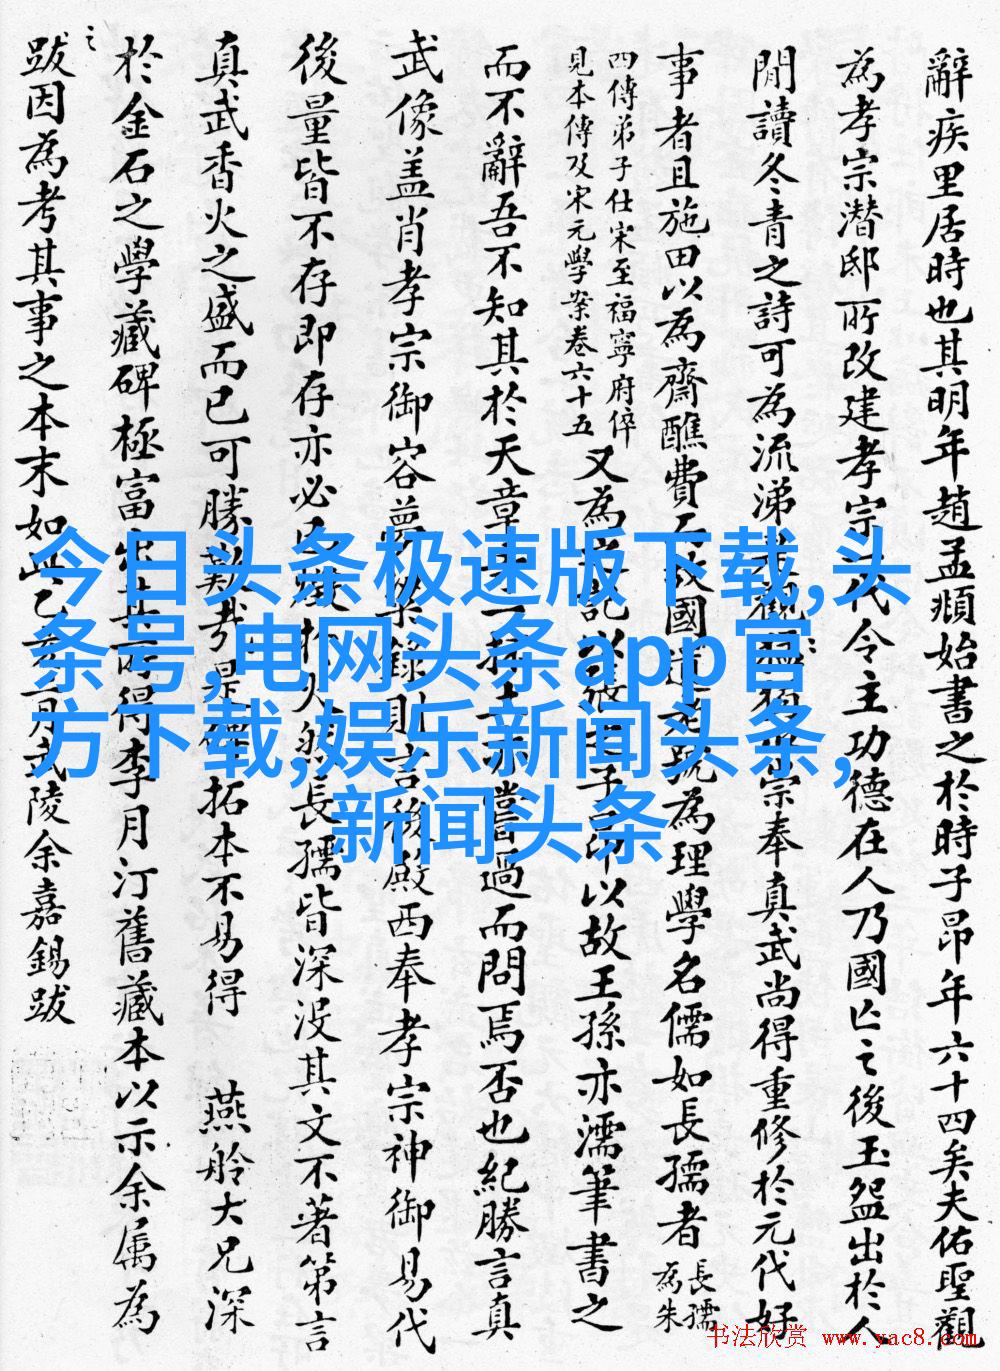 辭疾里居時也其明年趙孟頫始書之於時子昂年六十四矣夫佑聖觀
為孝宗潜邸所改建孝宗代令主功德在人乃國亡之後玉盌出於人
閒讀冬青之詩可為流涕觀宗奉真武尚得重修於元代好
事者且施田以為齋醮費故國遺為理學名儒如長孺者
長孺
為朱
四傳弟子仕宋至福寧府倅
見本傳及宋元學案卷六十五
又為記以子昂以故王孫亦濡筆書之
而不辭吾不知其於天章亦嘗過而問焉否也紀勝言真
武像盖肖孝宗御容夢粱錄則言後殿西奉孝宗神御易代
後量皆不存即存亦必於火然長孺皆深没其文不著第言
真武香火之盛而已可勝歎哉是碑拓本不易得 燕舲大兄深
於金石之學藏碑極富其所得李月汀舊藏本以示余属為
之
跋因為考其事之本末如此乙亥月武陵余嘉錫跋
今日头条极速版下载,头
条号,电网头条app官
方下载,娱乐新闻头条,
新闻头条
书法欣赏 www.yac8.com